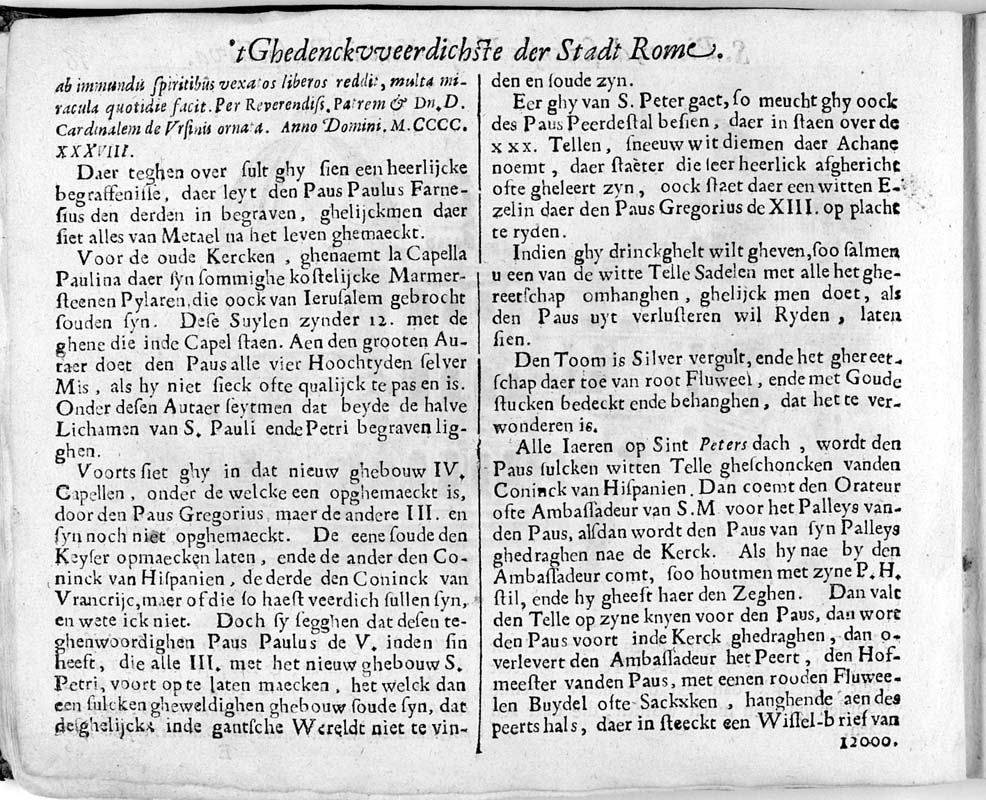 'tGhedenckvveerdichste der Stadt Rome.
ab immundũ spiritibũs vexatos liberos reddit, multa mi-
racula quotidie facit. Per Reverendiss. Patrem & Dn. D.
Cardinalem de Vrsinis ornata. Anno Domini. M. CCCC.
XXXVIII.
Daer teghen over sult ghy sien een heerlijcke
begraffenisse, daer leyt den Paus Paulus Farne-
sius den derden in begraven, ghelijckmen daer
siet alles van Metael na het leven ghemaeckt.
Voor de oude Kercken, ghenaemt la Capella
Paulina daer syn sommighe kostelijcke Marmer-
steenen Pylaren, die oock van Ierusalem gebrocht
souden syn. Dese Suylen zynder 12. met de
ghene die inde Capel staen. Aen den grooten Au-
taer doet den Paus alle vier Hoochtyden selver
Mis, als hy niet sieck ofte qualijck te pas en is.
Onder desen Autaer seytmen dat beyde de halve
Lichamen van S. Pauli ende Petri begraven lig-
ghen.
Voorts siet ghy in dat nieuw ghebouw IV.
Capellen, onder de welcke een opghemaeckt is,
door den Paus Gregorius, maer de andere III. en
syn noch niet opghemaeckt. De eene soude den
Keyser opmaecken laten, ende de ander den Co-
ninck van Hispanien, de derde den Coninck van
Vrancrijc, maer of die so haest veerdich sullen syn,
en wete ick niet. Doch sy segghen dat desen te-
ghenwoordighen Paus Paulus de V. inden sin
heeft, die alle III. met het nieuw ghebouw S.
Petri, voort op te laten maecken, het welck dan
een sulcken gheweldighen ghebouw soude syn, dat
desghelijcks inde gantsche Wereldt niet te vin-
den en soude zyn.
Eer ghy van S. Peter gaet, so meucht ghy oock
des Paus Peerdestal besien, daer in staen over de
xxx. Tellen, sneeuw wit diemen daer Achane
noemt, daer staeter die seer heerlick afghericht
ofte gheleert zyn, oock staet daer een witten E-
zelin daer den Paus Gregorius de XIII. op placht
te ryden.
Indien ghy drinckghelt wilt gheven, soo salmen
u een van de witte Telle Sadelen met alle het ghe-
reetschap omhanghen, ghelijck men doet, als
den Paus uyt verlusteren wil Ryden, laten
sien.
Den Toom is Silver vergult, ende het ghereet-
schap daer toe van root Fluweel, ende met Goude
stucken bedeckt ende behanghen, dat het te ver-
wonderen is.
Alle Iaeren op Sint Peters dach, wordt den
Paus sulcken witten Telle gheschoncken vanden
Coninck van Hispanien. Dan coemt den Orateur
ofte Ambassadeur van S. M voor het Palleys van-
den Paus, alsdan wordt den Paus van syn Palleys
ghedraghen nae de Kerck. Als hy nae by den
Ambassadeur comt, soo houtmen met zyne P. H.
stil, ende hy gheeft haer den Zeghen. Dan valt
den Telle op zyne knyen voor den Paus, dan wort
den Paus voort inde Kerck ghedraghen, dan o-
verlevert den Ambassadeur het Peert, den Hof-
meester vanden Paus, met eenen rooden Fluwee-
len Buydel ofte Sackxken, hanghende aen des
peerts hals, daer in steeckt een Wissel-brief van
12000.